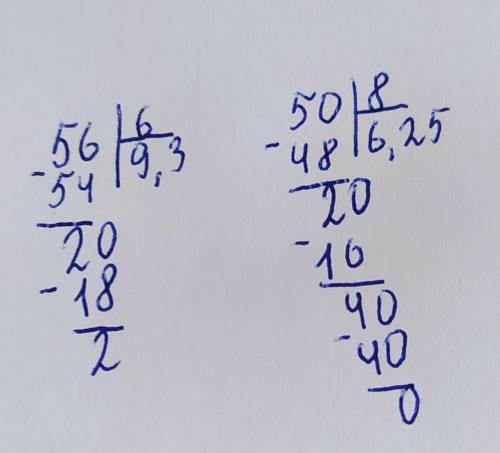 56 | 6
-54 | 9,3
20
-18
2
50 | 8
-48 | 6,25
20
-16
40
-40
0